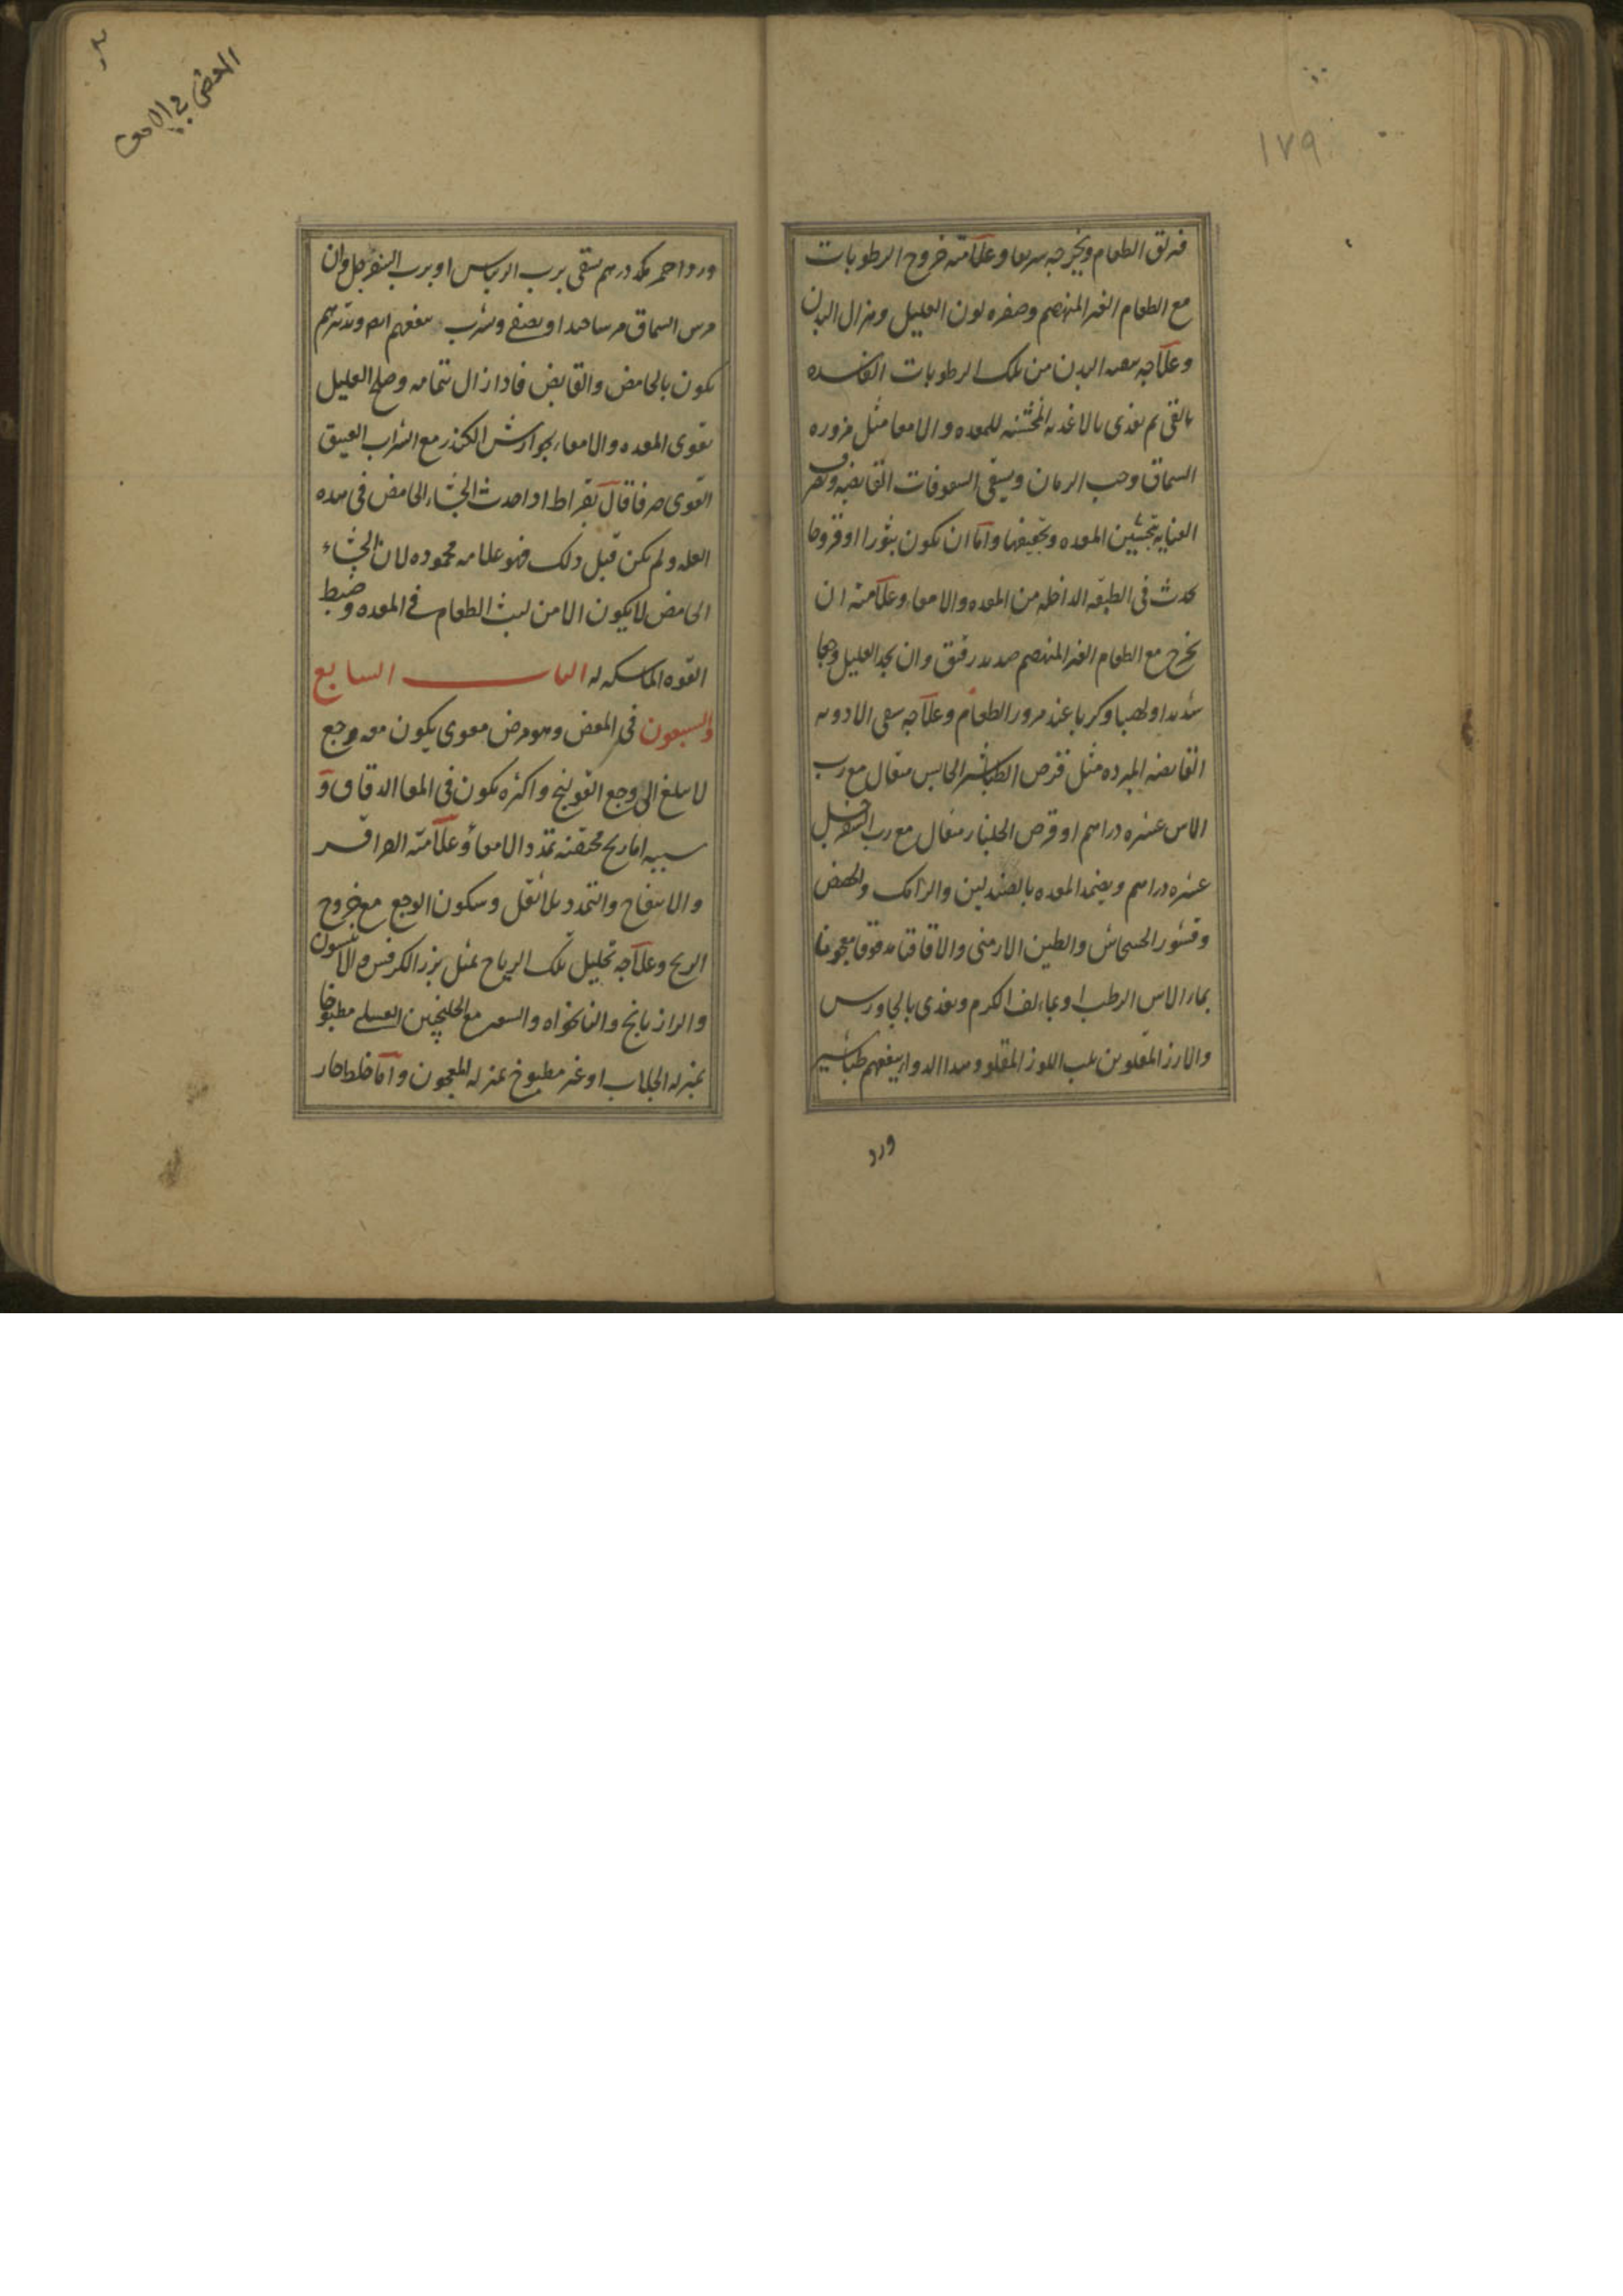 ١٧٩
فيزلق الطعام ويخرجه سريعا وعلامته خروج الرطوبات
مع الطعام الغير المنهضم وصفره لون العليل وهزال البدن
وعلاجه تنقيه البدن من تلك الرطوبات الفاسده
بالقي ثم يغذى بالاغذيه المخشنه للمعده والامعا مثل مزوره
السماق وحب الرمان ويسقى السفوفات القابضه وتصرف
العنايه بتخشين المعده وتجفيفها واما ان يكون بثورا او قروحا
تحدث فى الطبقه الداخله من المعده والامعاء وعلامته ان
يخرج مع الطعام الغير المنهضم صديد رقيق وان يجد العليل وجعا
شديدا ولهيبا وكربا عند مرور الطعام وعلاجه سقى الادويه
القابضه المبرده مثل قرص الطباشير الحابس مثقال مع رب
الاس عشره دراهم او قرص الجلنار مثقال مع رب السفرجل
عشره دراهم ويضمد المعده بالصندلين والرامك والحضض
وقشور الخشخاش والطين الارمنى والاقاقيا مدقوقا معجونا
بماء الاس الرطب او بماء لف الكرم ويغذى بالجاورس
والارز المقلوين بلب اللوز المقلو وهذا الدواء ينفعهم طباشير
ورد
المغص فى الامعاء
ورد احمر مكد درهم يسقى برب الريباس او برب السفرجل وان
مرس السماق مرسا جيدا ويصفى وشرب ينفعهم ايضا وتدبيرهم
يكون بالحامض والقابض فاذا زال بتمامه وصلح العليل
يقوى المعده والامعاء بجوارش الكندر مع الشراب العتيق
القوى صرفا قال بقراط اذا حدث الجشاء الحامض فى هذه
العله ولم يكن قبل ذلك فهو علامه محموده لان الجشاء
الحامض لا يكون الا من لبث الطعام فى المعده وضبط
القوه الماسكه له الباب السابع
والسبعون فى المغص وهو مرض معوى يكون معه وجع
لا يبلغ الى وجع القولنج واكثره يكون فى المعا الدقاق و
سببه اما ريح محتقنه تمدد الامعا وعلامته القراقر
والانتفاخ والتمدد بلا ثقل وسكون الوجع مع خروج
الريح وعلاجه تحليل تلك الرياح بمثل بزر الكرفس والانيسون
والرازيانج والنانخواه والسعتر مع الجلنجبين العسلى مطبوخا
بمنزله الجلاب او غير مطبوخ بمنزله المعجون واما خلط حار